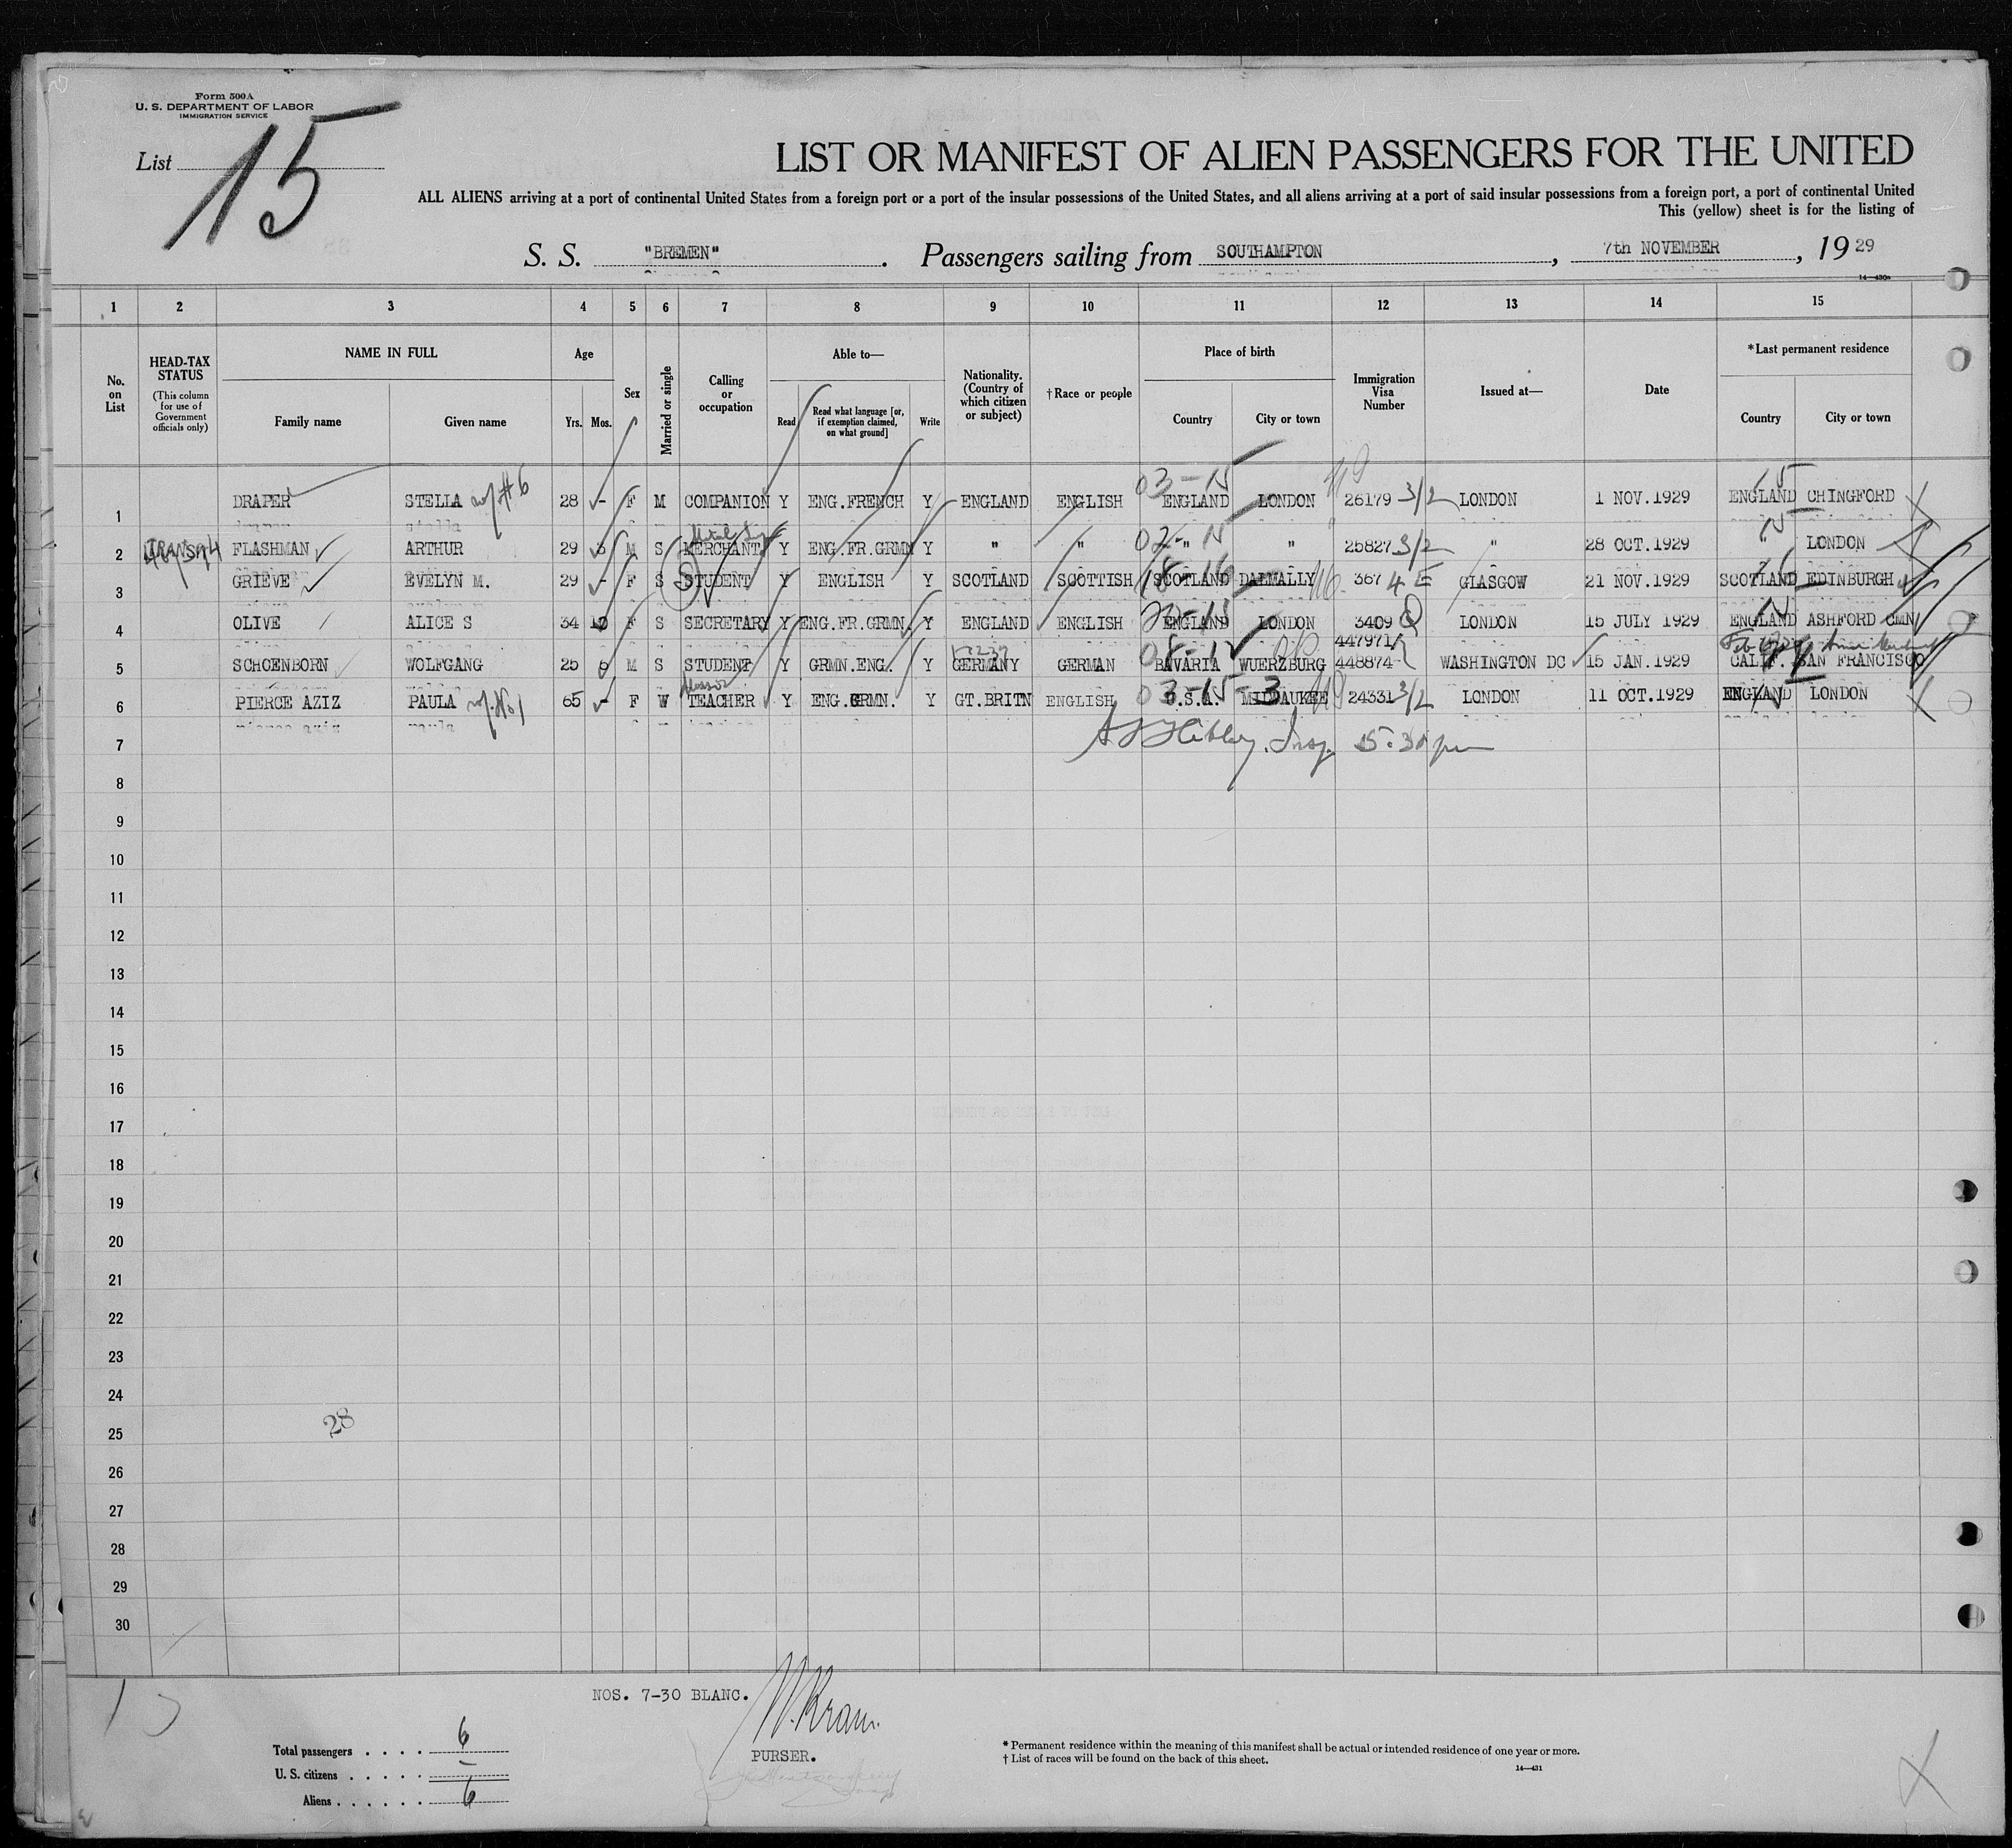 Form 500A
U. S. DEPARTMENT OF LABOR
IMMIGRATION SERVICE
List 15
LIST OR MANIFEST OF ALIEN PASSENGERS FOR THE UNITED
ALL ALIENS arriving at a port of continental United States from a foreign port or a port of the insular possessions of the United States, and all aliens arriving at a port of said insular possessions from a foreign port, a port of continental United
This (yellow) sheet is for the listing of
S. S. "BREMEN". Passengers sailing from SOUTHAMPTON, 7th NOVEMBER, 1929
14—430a
1 2 3 4 5 6 7 8 9 10 11 12 13 14 15
No. on List
HEAD-TAX STATUS
(This column for use of Government officials only)
NAME IN FULL
Family name Given name
Age
Yrs. Mos.
Sex
Married or single
Calling or occupation
Able to—
Read Read what language [or, if exemption claimed, on what ground] Write
Nationality. (Country of which citizen or subject)
† Race or people
Place of birth
Country City or town
Immigration Visa Number
Issued at—
Date
*Last permanent residence
Country City or town
03-15 15
1 DRAPER STELLA w/#6 28 - F M COMPANION Y ENG.FRENCH Y ENGLAND ENGLISH ENGLAND LONDON 26179 3/2 LONDON 1 NOV.1929 ENGLAND CHINGFORD
2 TRANSIT FLASHMAN ARTHUR 29 3 M S MERCHANT Y ENG.FR.GRMN Y " " " " 25827 3/2 " 28 OCT.1929 LONDON
3 GRIEVE EVELYN M. 29 - F S STUDENT Y ENGLISH Y SCOTLAND SCOTTISH SCOTLAND DALMALLY 367 4 E GLASGOW 21 NOV.1929 SCOTLAND EDINBURGH
4 OLIVE ALICE S 34 10 F S SECRETARY Y ENG.FR.GRMN. Y ENGLAND ENGLISH ENGLAND LONDON 3409 Q LONDON 15 JULY 1929 ENGLAND ASHFORD CMN
447971
5 SCHOENBORN WOLFGANG 25 6 M S STUDENT Y GRMN.ENG. Y GERMANY GERMAN BAVARIA WUERZBURG 448874 WASHINGTON DC 15 JAN.1929 CALIF. SAN FRANCISCO
6 PIERCE AZIZ PAULA w/.No.1 65 - F W TEACHER Y ENG.GRMN. Y GT.BRITN ENGLISH U.S.A. MILWAUKEE 24331 3/2 LONDON 11 OCT.1929 ENGLAND LONDON
7
8
9
10
11
12
13
14
15
16
17
18
19
20
21
22
23
24
25 28
26
27
28
29
30
NOS. 7-30 BLANC.
W. Kram.
PURSER.
Total passengers . . . . 6
U. S. citizens . . . . . –
Aliens . . . . . . 6
* Permanent residence within the meaning of this manifest shall be actual or intended residence of one year or more.
† List of races will be found on the back of this sheet.
14—431